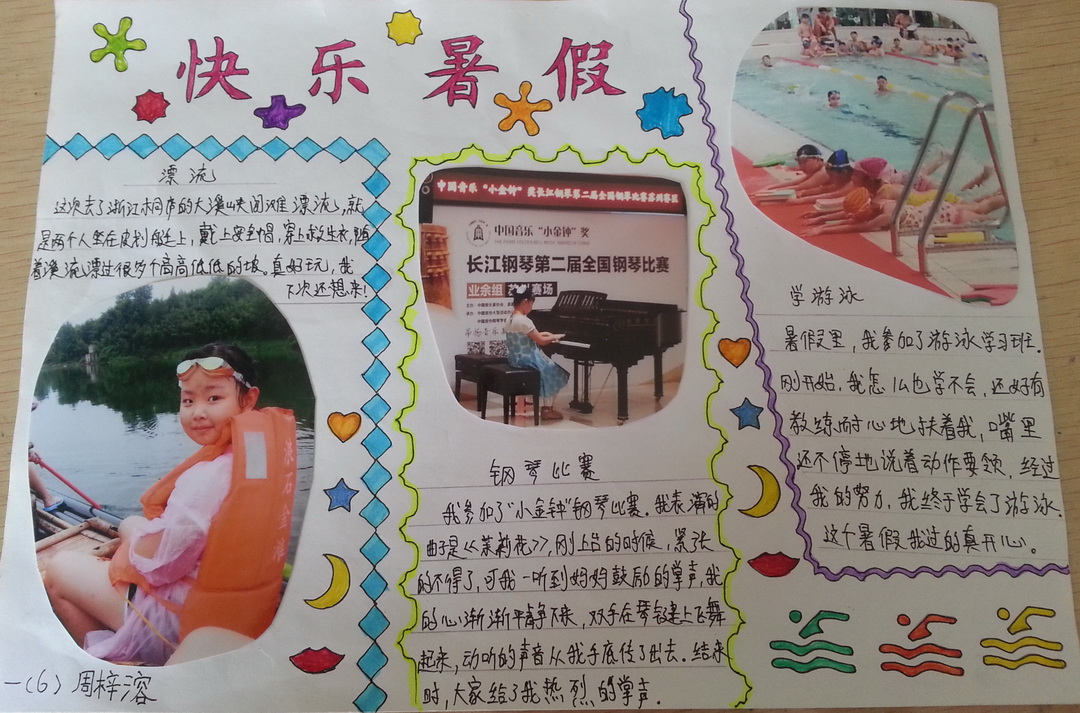 快乐暑假
漂流
这次去了浙江桐庐的大溪峡闯滩漂流,就
是两个人坐在皮划艇上,戴上安全帽,穿上救生衣,随
着溪流漂过很多个高高低低的坡。真好玩,我
下次还想来!
一(6)周梓溶
中国音乐“小金钟”奖长江钢琴第二届全国钢琴比赛苏州赛区
中国音乐“小金钟”奖
长江钢琴第二届全国钢琴比赛
业余组 苏州赛场
钢琴比赛
我参加了“小金钟”钢琴比赛。我表演的
曲子是《茉莉花》,刚上台的时候,紧张
的不得了,可我一听到妈妈鼓励的掌声,我
的心渐渐平静下来,双手在琴键上飞舞
起来,动听的声音从我手底传了出去。结束
时,大家给了我热烈的掌声。
学游泳
暑假里,我参加了游泳学习班。
刚开始,我怎么也学不会,还好有
教练耐心地扶着我,嘴里
还不停地说着动作要领,经过
我的努力,我终于学会了游泳。
这个暑假我过的真开心。